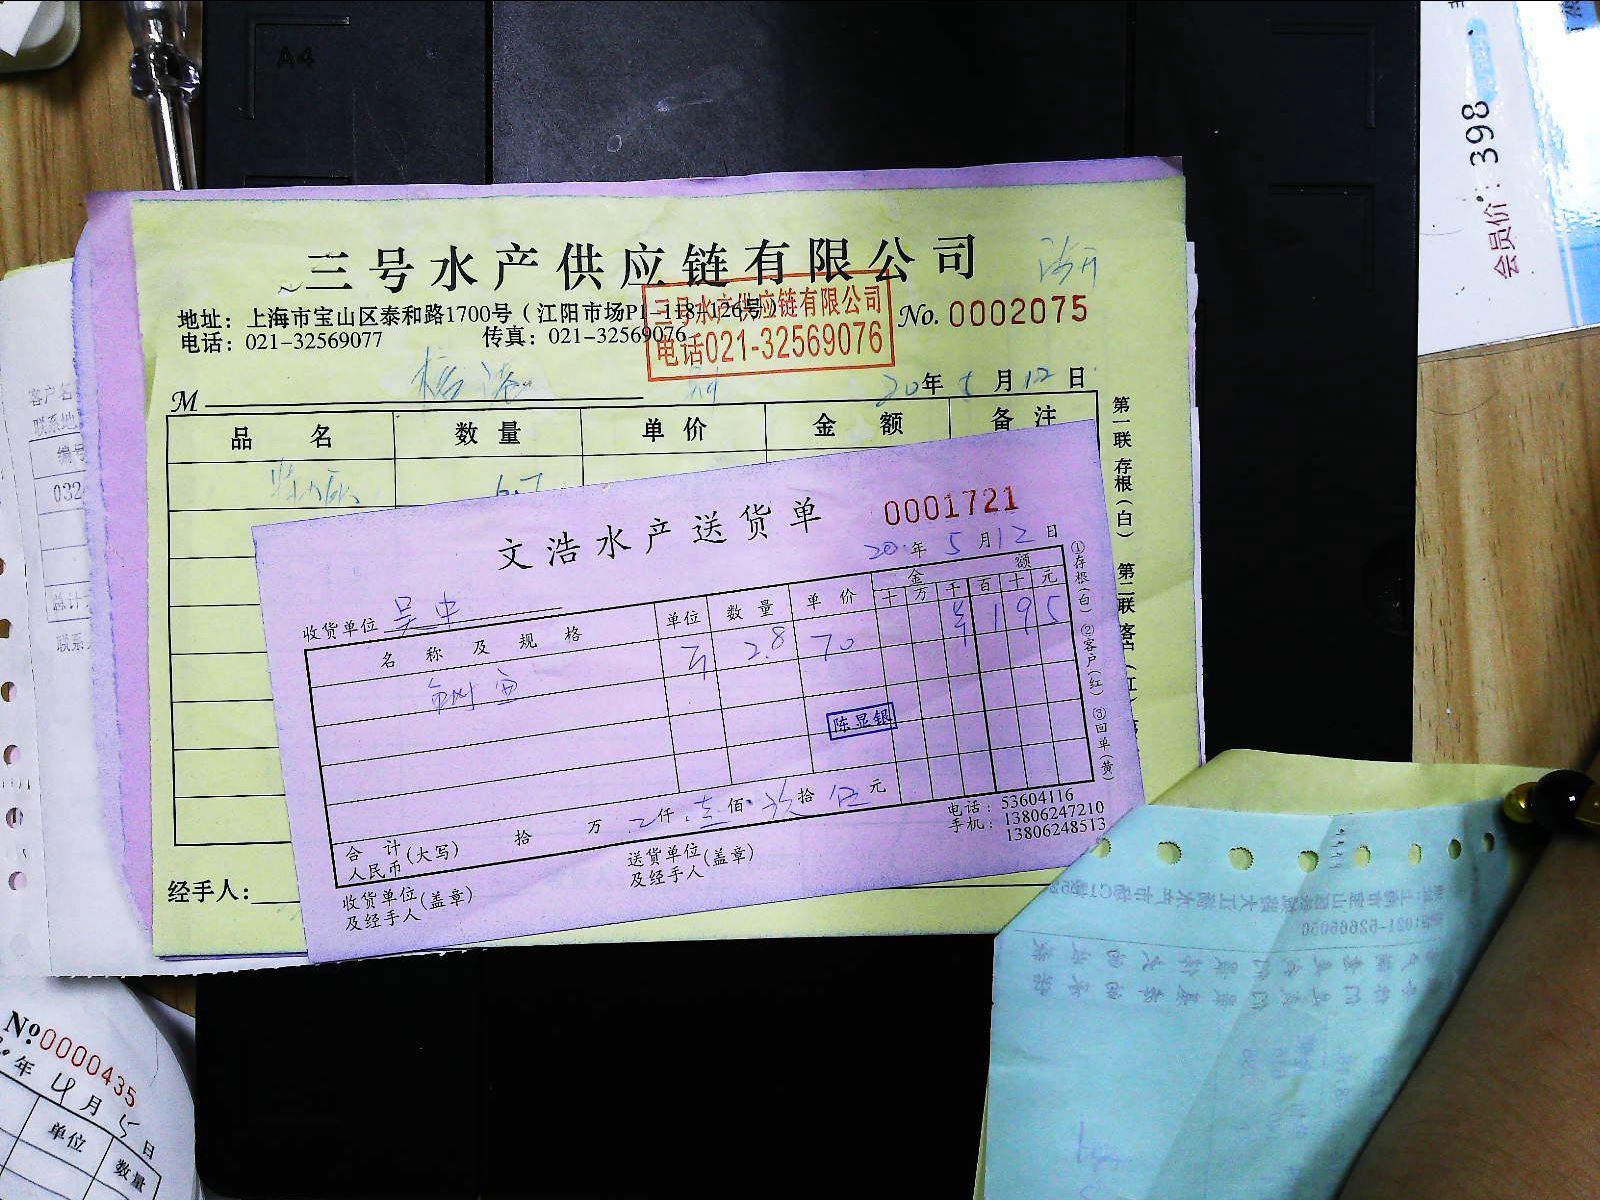 A4
会员价：398
三号水产供应链有限公司
地址：上海市宝山区泰和路1700号（江阳市场P1-118-126号）
No. 0002075
电话：021-32569077 传真：021-32569076
三号水产供应链有限公司
电话021-32569076
M
20年5月12日
品名 数量 单价 金额 备注
6.7
第一联 存根（白） 第二联 客户（红）
经手人：
文浩水产送货单
0001721
20年5月12日
收货单位 吴中
名称及规格 单位 数量 单价 金额
十万千百十元
2.8 70 195
陈显银
合计人民币（大写） 拾 万 仟 壹佰 玖拾 伍元
①存根（白） ②客户（红） ③回单（黄）
电话：53604116
手机：13806247210
13806248513
收货单位及经手人（盖章）
送货单位及经手人（盖章）
客户名
联系地
编号
032
总计
联系
No 0000435
年4月5日
单位 数量